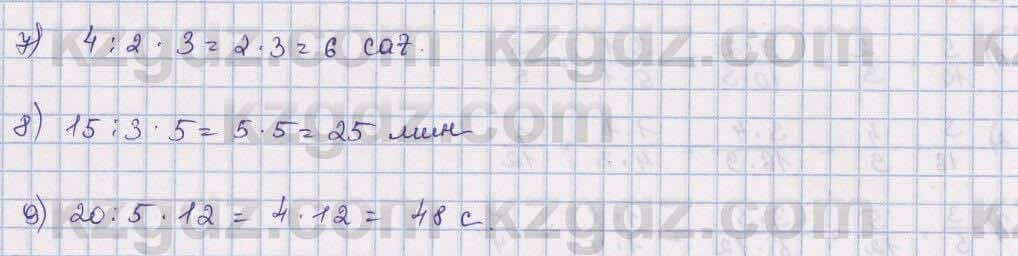 7) 4 : 2 · 3 = 2 · 3 = 6 сағ.
8) 15 : 3 · 5 = 5 · 5 = 25 мин
9) 20 : 5 · 12 = 4 · 12 = 48 с.
kzgdz.com kzgdz.com
kzgdz.com
kzgdz.com kzgdz.com